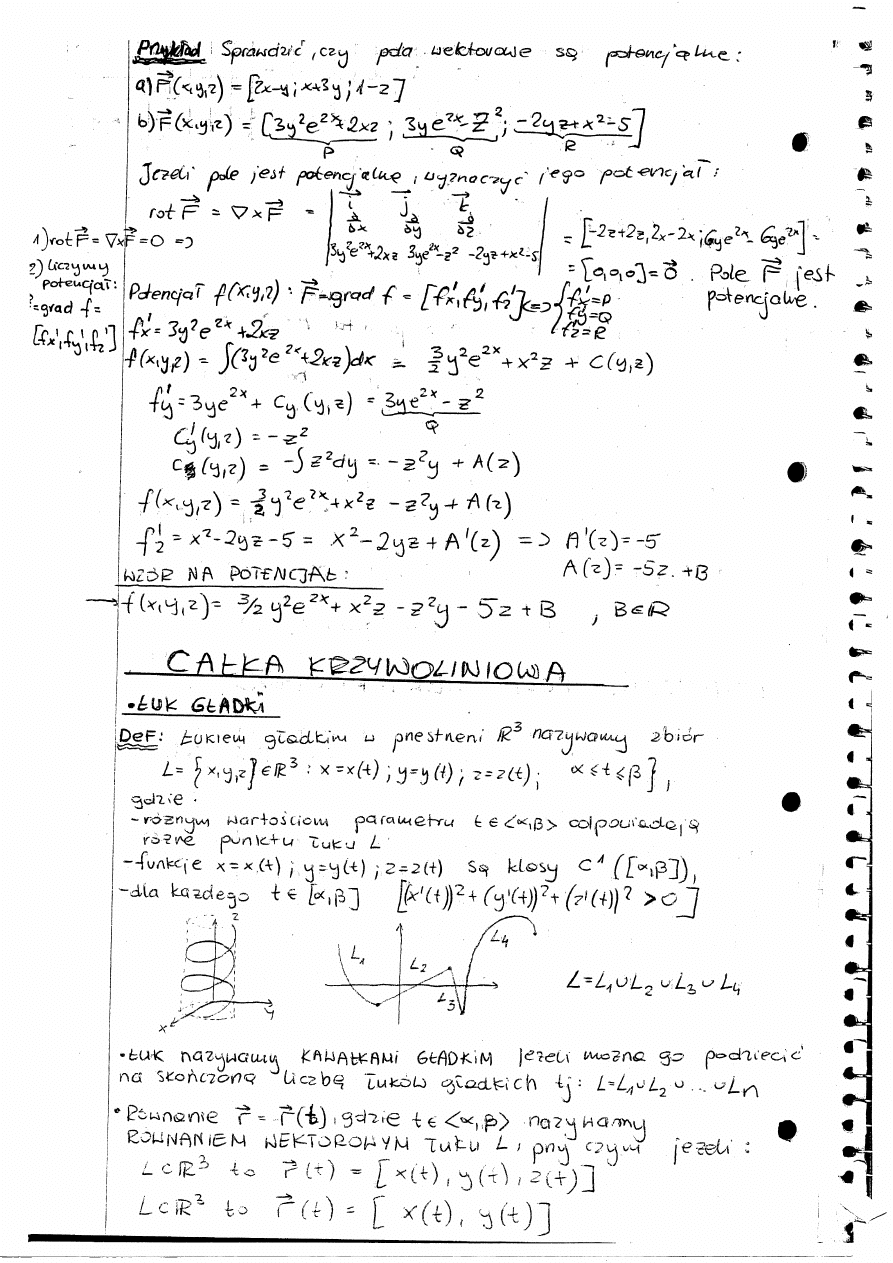 Przykład: Sprawdzić, czy pola wektorowe są potencjalne:
a) F⃗(x,y,z) = [2x-y; x+3y; 1-z]
b) F⃗(x,y,z) = [3y²e^{2x}+2xz ; 3ye^{2x}-z² ; -2yz+x²-5]
P Q R
Jeżeli pole jest potencjalne, wyznaczyć jego potencjał:
rot F⃗ = ∇×F⃗ = | i⃗ j⃗ k⃗ |
∂/∂x ∂/∂y ∂/∂z
3y²e^{2x}+2xz 3ye^{2x}-z² -2yz+x²-5
= [-2z+2z, 2x-2x; 6ye^{2x}-6ye^{2x}] =
= [0,0,0] = 0⃗. Pole F⃗ jest
potencjalne.
1) rot F⃗ = ∇×F⃗ = 0 =>
2) liczymy
potencjał:
=grad f=
[fx', fy', fz']
Potencjał f(x,y,z): F⃗=grad f = [fx', fy', fz'] <=> { fx'=P
fy'=Q
fz'=R
fx' = 3y²e^{2x}+2xz
f(x,y,z) = ∫(3y²e^{2x}+2xz)dx = 3/2 y²e^{2x} + x²z + C(y,z)
fy' = 3ye^{2x} + Cy(y,z) = 3ye^{2x} - z²
Q
Cy'(y,z) = -z²
C(y,z) = -∫z²dy = -z²y + A(z)
f(x,y,z) = 3/2 y²e^{2x}+x²z - z²y + A(z)
fz' = x²-2yz-5 = x²-2yz+A'(z) => A'(z)=-5
A(z)= -5z+B
WZÓR NA POTENCJAŁ:
→ f(x,y,z)= 3/2 y²e^{2x}+x²z - z²y - 5z + B , B∈ℝ
CAŁKA KRZYWOLINIOWA
• ŁUK GŁADKI
DEF: Łukiem gładkim w pnestneni ℝ³ nazywamy zbiór
L= {x,y,z}∈ℝ³ : x=x(t) ; y=y(t) ; z=z(t) ; α≤t≤β},
gdzie.
- różnym wartościom parametru t∈<α,β> odpowiadają
różne punktu łuku L
- funkcje x=x(t) ; y=y(t) ; z=z(t) są klasy C¹([α,β]),
- dla każdego t∈[α,β] [(x'(t))²+(y'(t))²+(z'(t))² >0]
z
y
x
L₁ L₂ L₃ L₄
L=L₁∪L₂∪L₃∪L₄
• Łuk nazywamy KAWAŁKAMI GŁADKIM jeżeli można go podzielić
na skończoną liczbę łuków gładkich tj: L=L₁∪L₂∪...∪Ln
• Równanie r⃗ = r⃗(t), gdzie t∈<α,β> nazywamy
RÓWNANIEM WEKTOROWYM ŁUKU L, pny czym jeżeli:
L⊂ℝ³ to r⃗(t) = [x(t), y(t), z(t)]
L⊂ℝ² to r⃗(t) = [x(t), y(t)]